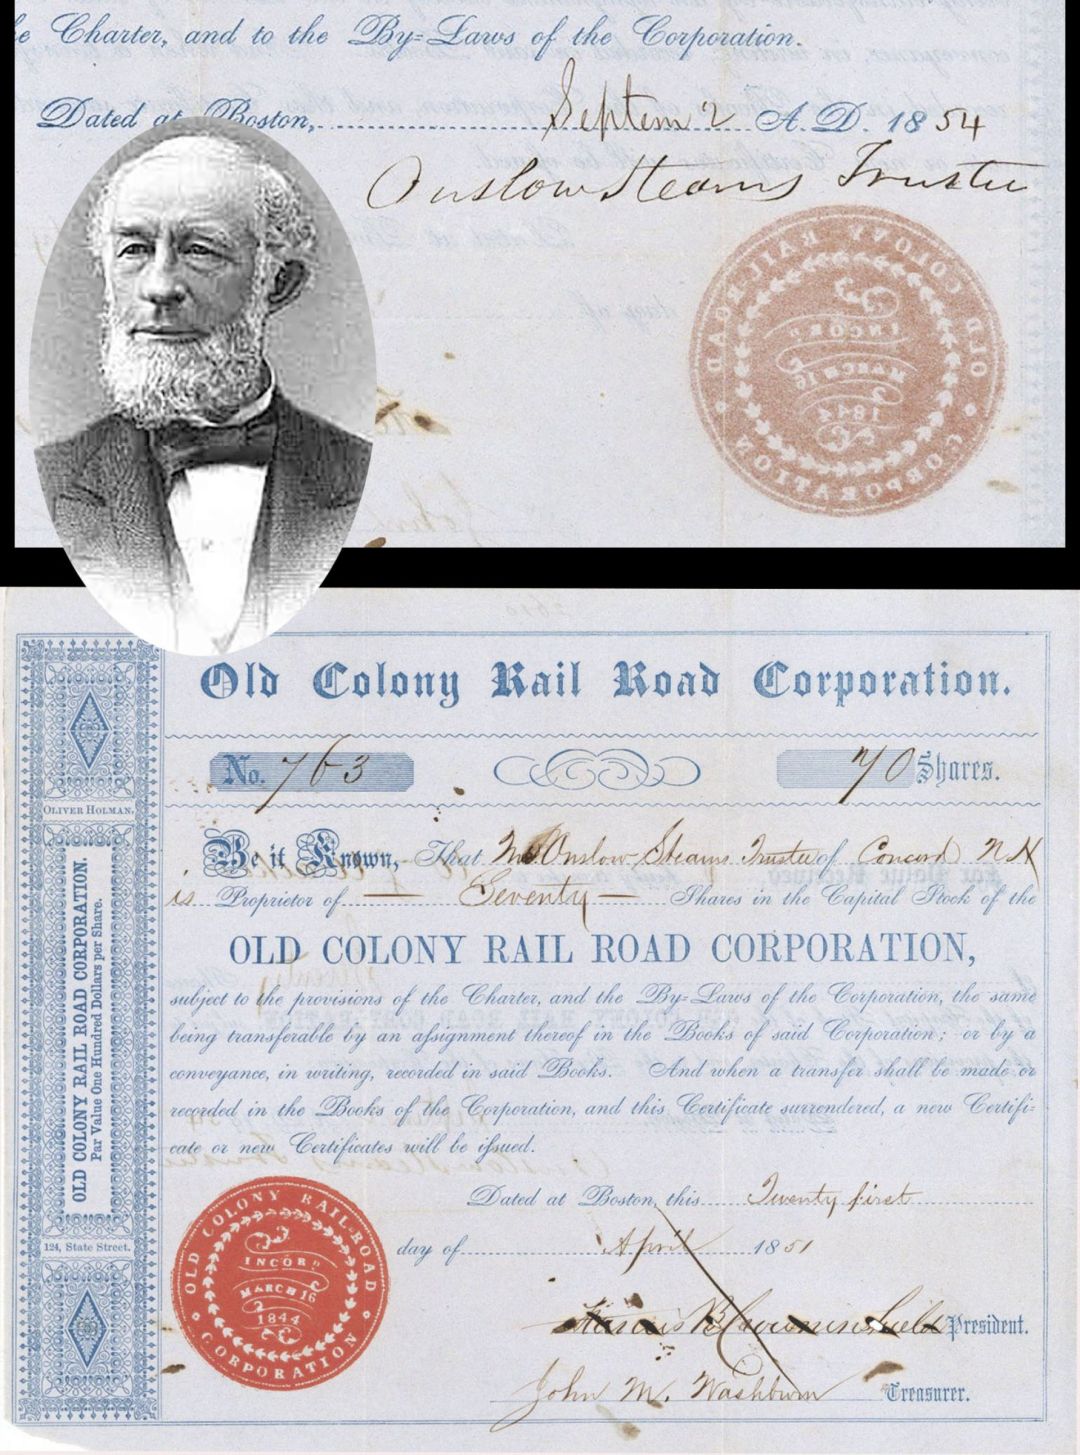 e Charter, and to the By=Laws of the Corporation.
Dated at Boston, Septem 2 A.D. 1854
Onslow Stearns Trustee
OLD COLONY RAIL-ROAD
CORPORATION
INCORP
MARCH 16
1844
Old Colony Rail Road Corporation.
No. 763
70 Shares.
Be it Known, That Onslow Stearns Trustee of Concord N H
is Proprietor of Seventy Shares in the Capital Stock of the
OLD COLONY RAIL ROAD CORPORATION,
subject to the provisions of the Charter, and the By=Laws of the Corporation, the same
being transferable by an assignment thereof in the Books of said Corporation; or by a
conveyance, in writing, recorded in said Books. And when a transfer shall be made or
recorded in the Books of the Corporation, and this Certificate surrendered, a new Certifi=
cate or new Certificates will be issued.
Dated at Boston, this Twenty first
day of April 1851
Francis B Crowninshield President.
John M. Washburn Treasurer.
OLIVER HOLMAN.
OLD COLONY RAIL ROAD CORPORATION.
Par Value One Hundred Dollars per Share.
124, State Street.
OLD COLONY RAIL-ROAD
CORPORATION
INCORP
MARCH 16
1844